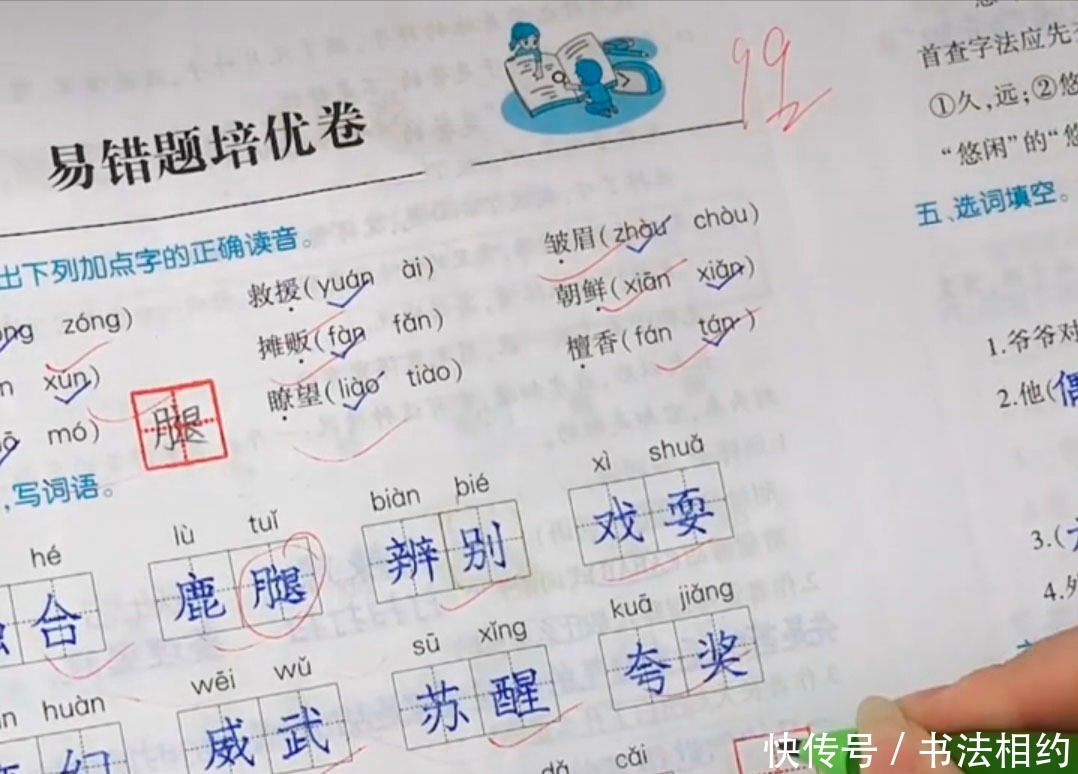 99
易错题培优卷
首查字法应先
①久,远;②悠
“悠闲”的“悠
五、选词填空。
1.爷爷对
2.他(偶
3.(
4.
出下列加点字的正确读音。
zóng) 救援(yuán ài) 皱眉(zhòu chòu)
xùn) 摊贩(fàn fǎn) 朝鲜(xiān xiǎn)
mó) 瞭望(liào tiào) 檀香(fán tán)
腿
写词语。
hé lù tuǐ biàn bié xì shuǎ
合 鹿腿 辨别 戏耍
huàn wēi wǔ sū xǐng kuā jiǎng
幻 威武 苏醒 夸奖
cǎi
快传号 / 书法相约